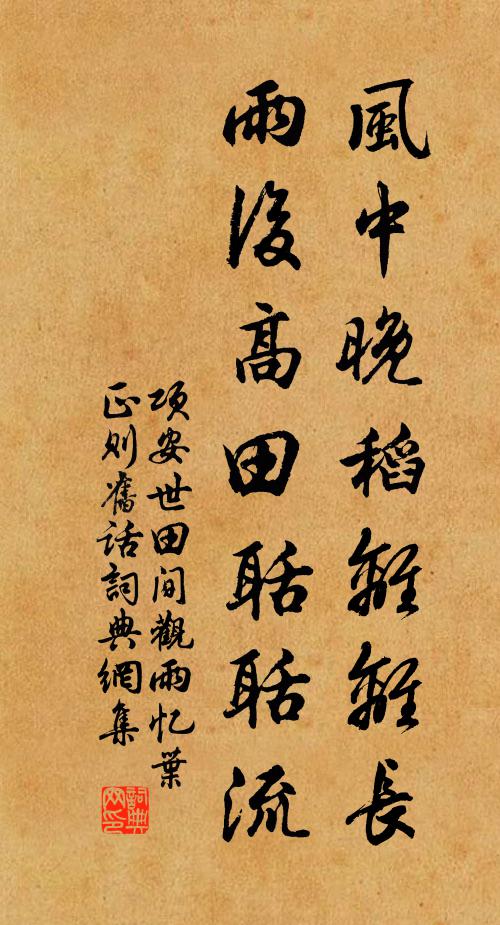 風中晚稻離離長
雨後高田聒聒流
項安世田間觀雨忆葉
正则舊话詞典網集
詞典
网印